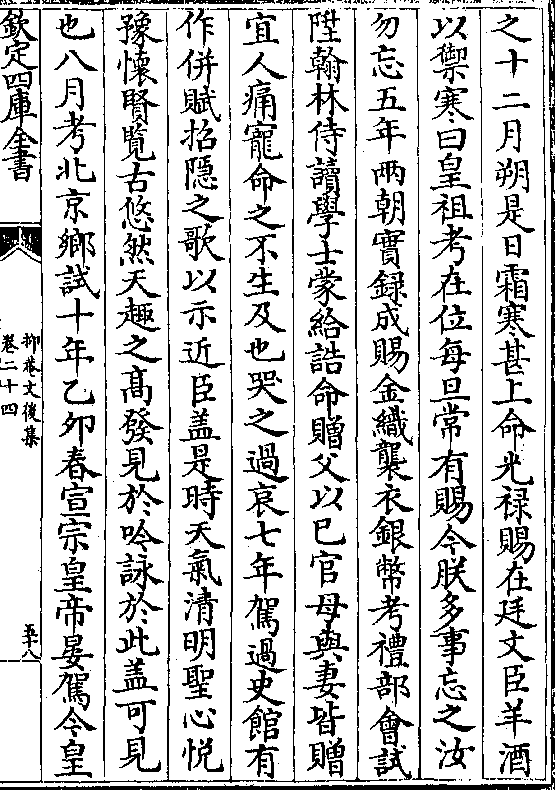 之十二月朔是日霜寒甚上命光禄賜在廷文臣羊酒
以禦寒曰皇祖考在位每旦常有賜今朕多事忘之汝
勿忘五年兩朝實録成賜金織襲衣銀幣考禮部㑹試
陞翰林侍讀學士蒙給誥命贈父以已官母與妻皆贈
宜人痛寵命之不生及也哭之過哀七年駕過史館有
作併賦招隠之歌以示近臣盖是時天氣清明聖心悦
豫懷賢覧古悠然天趣之髙發見於吟詠於此盖可見
也八月考北京鄉試十年乙夘春宣宗皇帝晏駕今皇
欽定四庫全書
抑菴文後集
卷二十四
五十八